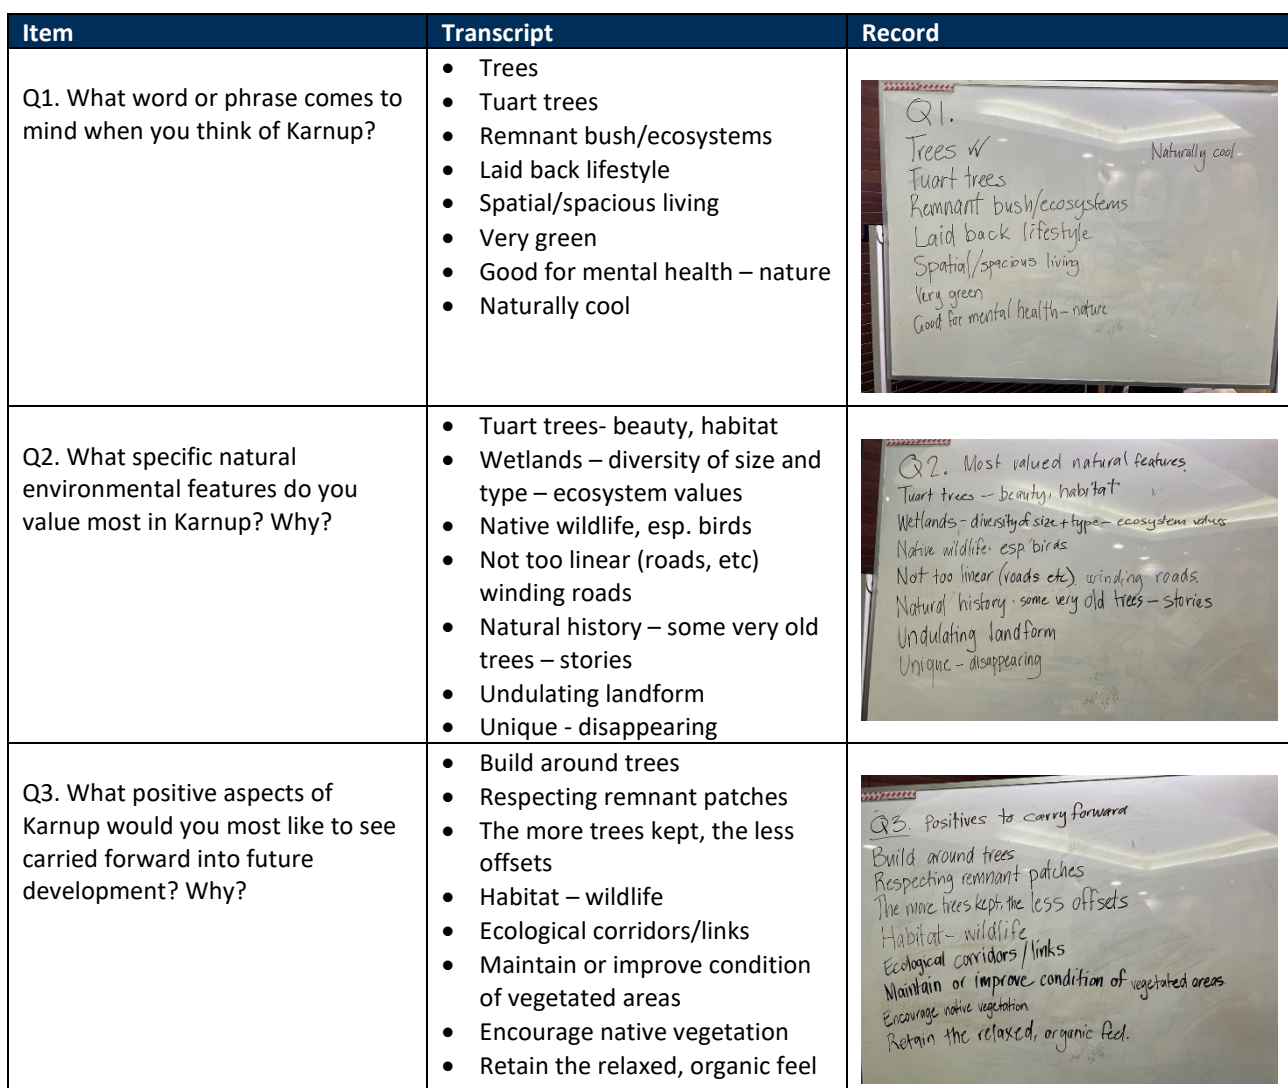 Item Transcript Record
Q1. What word or phrase comes to
mind when you think of Karnup?
• Trees
• Tuart trees
• Remnant bush/ecosystems
• Laid back lifestyle
• Spatial/spacious living
• Very green
• Good for mental health – nature
• Naturally cool
Q1.
Trees
Naturally cool
Tuart trees
Remnant bush/ecosystems
Laid back lifestyle
Spatial/spacious living
Very green
Good for mental health – nature
Q2. What specific natural
environmental features do you
value most in Karnup? Why?
• Tuart trees- beauty, habitat
• Wetlands – diversity of size and
type – ecosystem values
• Native wildlife, esp. birds
• Not too linear (roads, etc)
winding roads
• Natural history – some very old
trees – stories
• Undulating landform
• Unique - disappearing
Q2. Most valued natural features.
Tuart trees – beauty, habitat
Wetlands – diversity of size + type – ecosystem values
Native wildlife. esp. birds
Not too linear (roads etc), winding roads.
Natural history - some very old trees – stories
Undulating landform
Unique – disappearing
Q3. What positive aspects of
Karnup would you most like to see
carried forward into future
development? Why?
• Build around trees
• Respecting remnant patches
• The more trees kept, the less
offsets
• Habitat – wildlife
• Ecological corridors/links
• Maintain or improve condition
of vegetated areas
• Encourage native vegetation
• Retain the relaxed, organic feel
Q3. Positives to carry forward
Build around trees
Respecting remnant patches
The more trees kept, the less offsets
Habitat – wildlife
Ecological corridors/links
Maintain or improve condition of vegetated areas
Encourage native vegetation.
Retain the relaxed, organic feel.